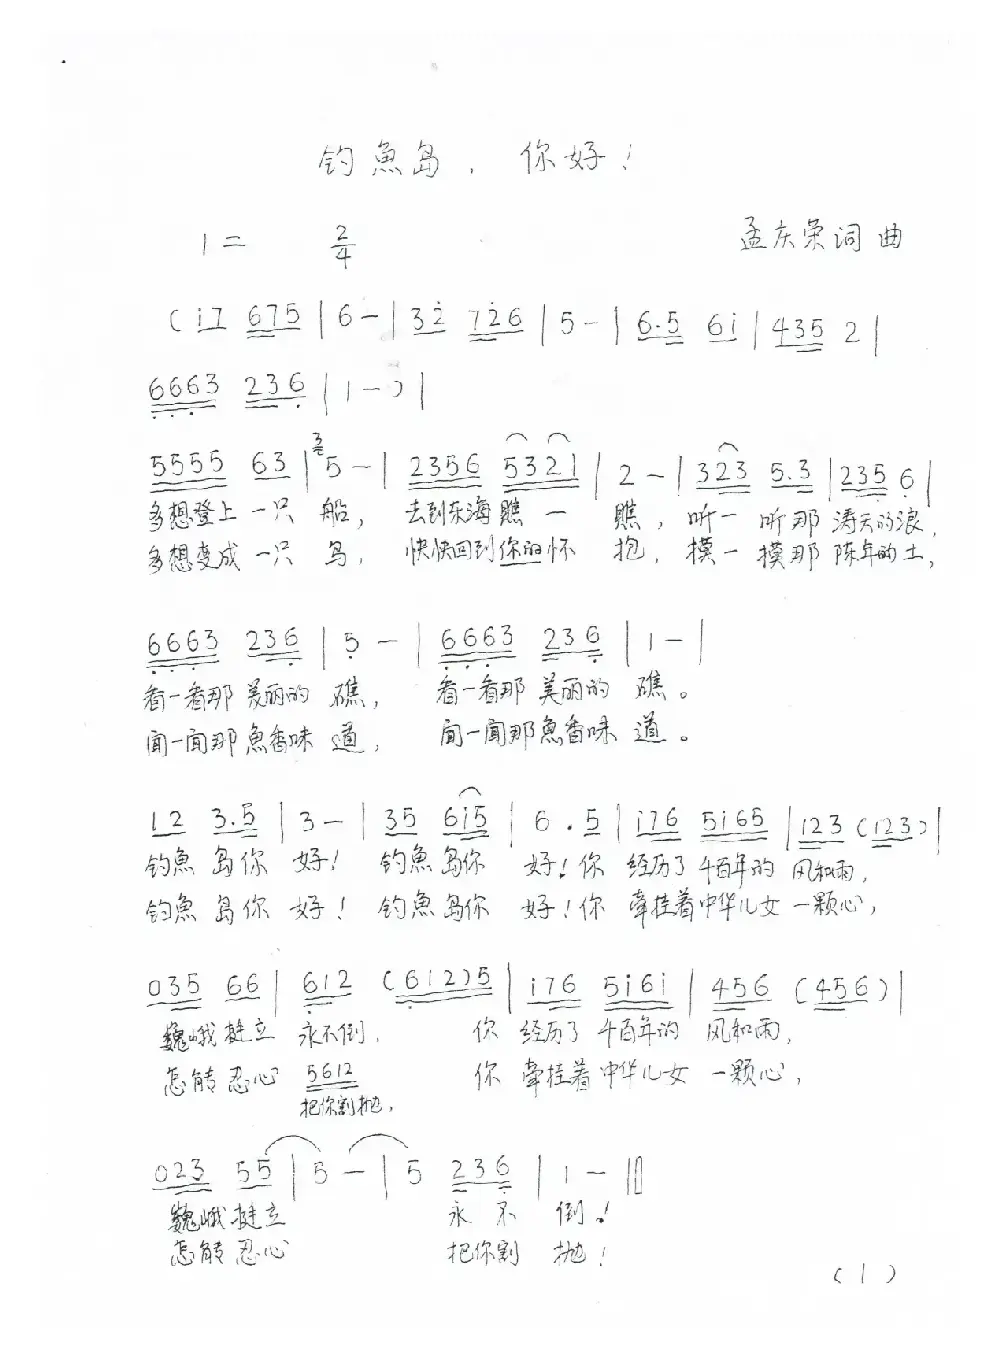 钓魚岛，你好！
1= 2/4 孟庆荣词曲
(i7 675 | 6 - | 32̇ 72̇6 | 5 - | 6.5 6i | 435 2 |
6663 236 | 1 - ) |
5555 63 | 3 5 - | 2356 5321 | 2 - | 323 5.3 | 235 6 |
多想登上 一只 船， 去到东海瞧 一 瞧，听一 听那 涛天的浪，
多想变成 一只 鸟， 快快回到你的怀 抱，摸一 摸那 陈年的土，
6663 236 | 5 - | 6663 236 | 1 - |
看一看那 美丽的 礁， 看一看那 美丽的 礁。
闻一闻那 魚香味 道， 闻一闻那 魚香味 道。
12 3.5 | 3 - | 35 6i5 | 6 . 5 | i76 5i65 | 123 (123) |
钓魚 岛你 好！ 钓魚 岛你 好！你 经历了 千百年的 风和雨，
钓魚 岛你 好！ 钓魚 岛你 好！你 牵挂着 中华儿女 一颗心，
035 66 | 612 (612)5 | i76 5i6i | 456 (456) |
巍峨 挺立 永不倒， 你 经历了 千百年的 风和雨，
怎能 忍心 5612 你 牵挂着 中华儿女 一颗心，
把你割抛，
023 55 | 5 - | 5 236 | 1 - ‖
巍峨 挺立 永 不 倒！
怎能 忍心 把你割 抛！
(1)